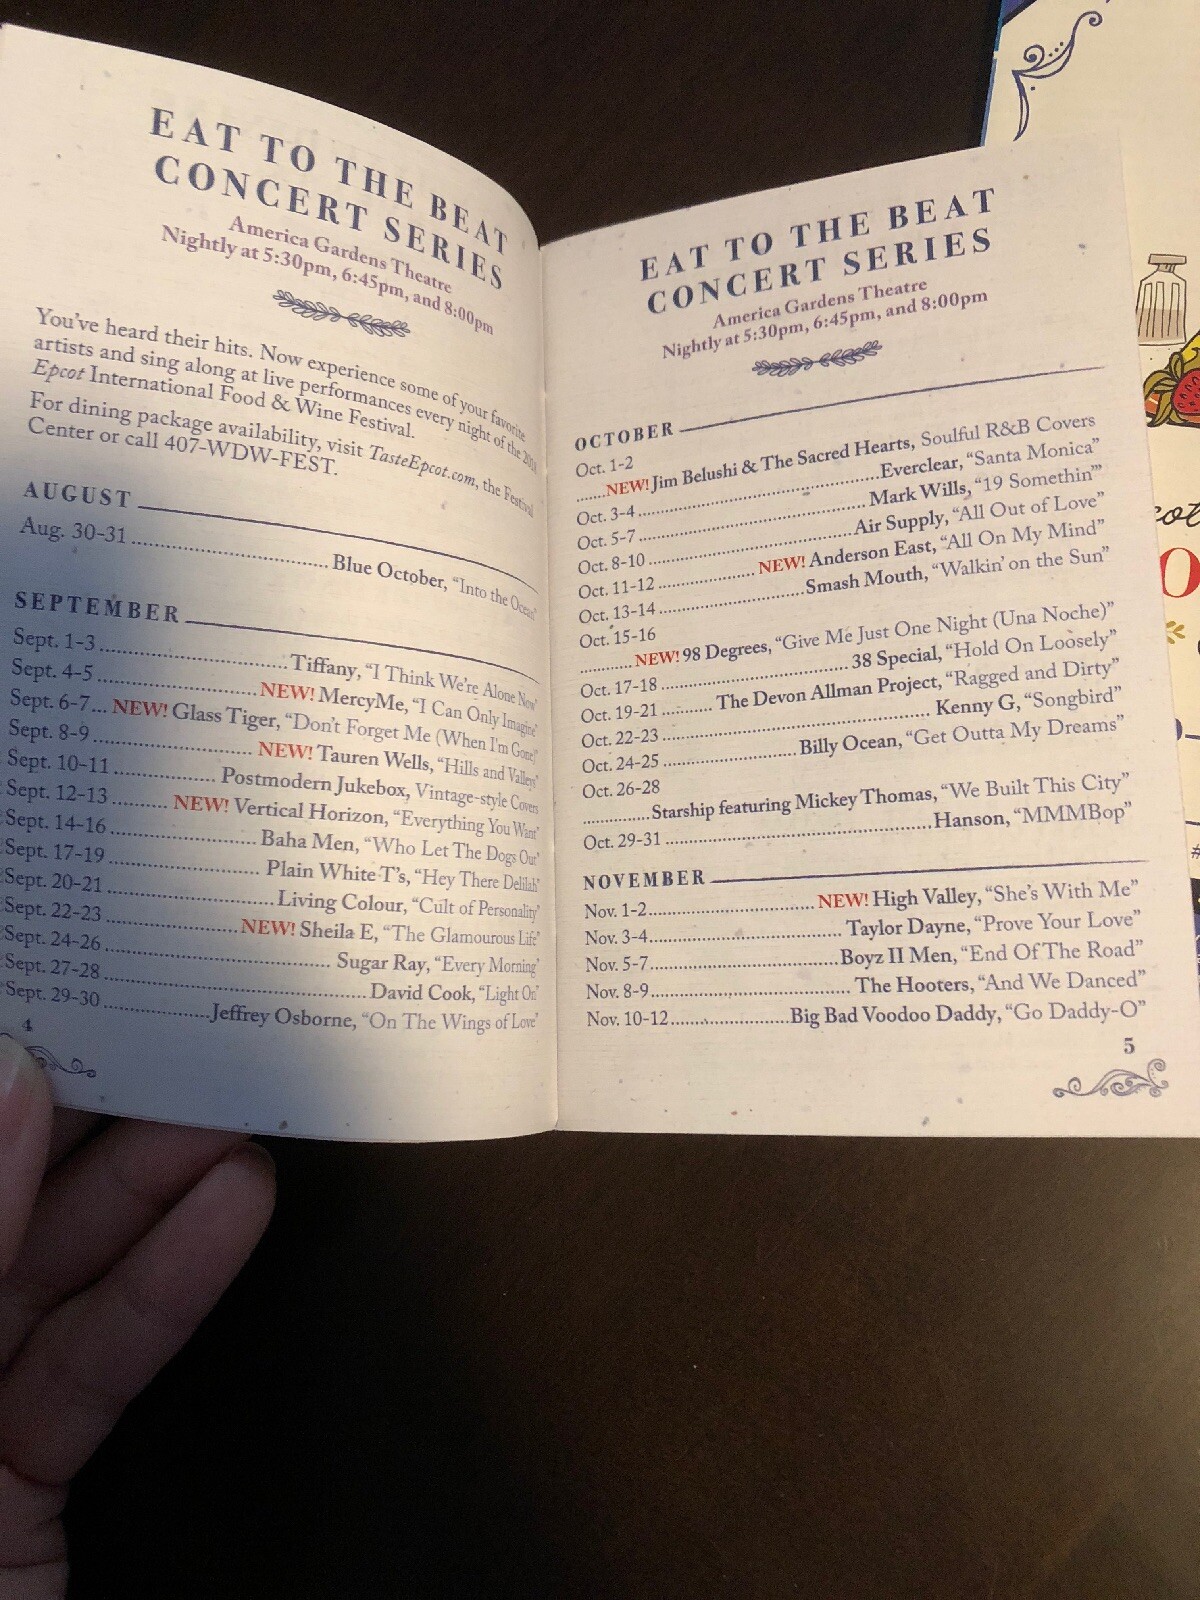 EAT TO THE BEAT
CONCERT SERIES
America Gardens Theatre
Nightly at 5:30pm, 6:45pm, and 8:00pm
You've heard their hits. Now experience some of your favorite
artists and sing along at live performances every night of the
Epcot International Food & Wine Festival.
For dining package availability, visit TasteEpcot.com, the Festival
Center or call 407-WDW-FEST.
AUGUST
Aug. 30-31 Blue October, “Into the Ocean”
SEPTEMBER
Sept. 1-3 Tiffany, “I Think We're Alone Now”
Sept. 4-5 NEW! MercyMe, “I Can Only Imagine”
Sept. 6-7 NEW! Glass Tiger, “Don't Forget Me (When I'm Gone)”
Sept. 8-9 NEW! Tauren Wells, “Hills and Valleys”
Sept. 10-11 Postmodern Jukebox, Vintage-style Covers
Sept. 12-13 NEW! Vertical Horizon, “Everything You Want”
Sept. 14-16 Baha Men, “Who Let The Dogs Out”
Sept. 17-19 Plain White T's, “Hey There Delilah”
Sept. 20-21 Living Colour, “Cult of Personality”
Sept. 22-23 NEW! Sheila E, “The Glamourous Life”
Sept. 24-26 Sugar Ray, “Every Morning”
Sept. 27-28 David Cook, “Light On”
Sept. 29-30 Jeffrey Osborne, “On The Wings of Love”
4
EAT TO THE BEAT
CONCERT SERIES
America Gardens Theatre
Nightly at 5:30pm, 6:45pm, and 8:00pm
OCTOBER
Oct. 1-2
NEW! Jim Belushi & The Sacred Hearts, Soulful R&B Covers
Oct. 3-4 Everclear, “Santa Monica”
Oct. 5-7 Mark Wills, “19 Somethin'”
Oct. 8-10 Air Supply, “All Out of Love”
Oct. 11-12 NEW! Anderson East, “All On My Mind”
Oct. 13-14 Smash Mouth, “Walkin' on the Sun”
Oct. 15-16
NEW! 98 Degrees, “Give Me Just One Night (Una Noche)”
Oct. 17-18 38 Special, “Hold On Loosely”
Oct. 19-21 The Devon Allman Project, “Ragged and Dirty”
Oct. 22-23 Kenny G, “Songbird”
Oct. 24-25 Billy Ocean, “Get Outta My Dreams”
Oct. 26-28
Starship featuring Mickey Thomas, “We Built This City”
Oct. 29-31 Hanson, “MMMBop”
NOVEMBER
Nov. 1-2 NEW! High Valley, “She's With Me”
Nov. 3-4 Taylor Dayne, “Prove Your Love”
Nov. 5-7 Boyz II Men, “End Of The Road”
Nov. 8-9 The Hooters, “And We Danced”
Nov. 10-12 Big Bad Voodoo Daddy, “Go Daddy-O”
5